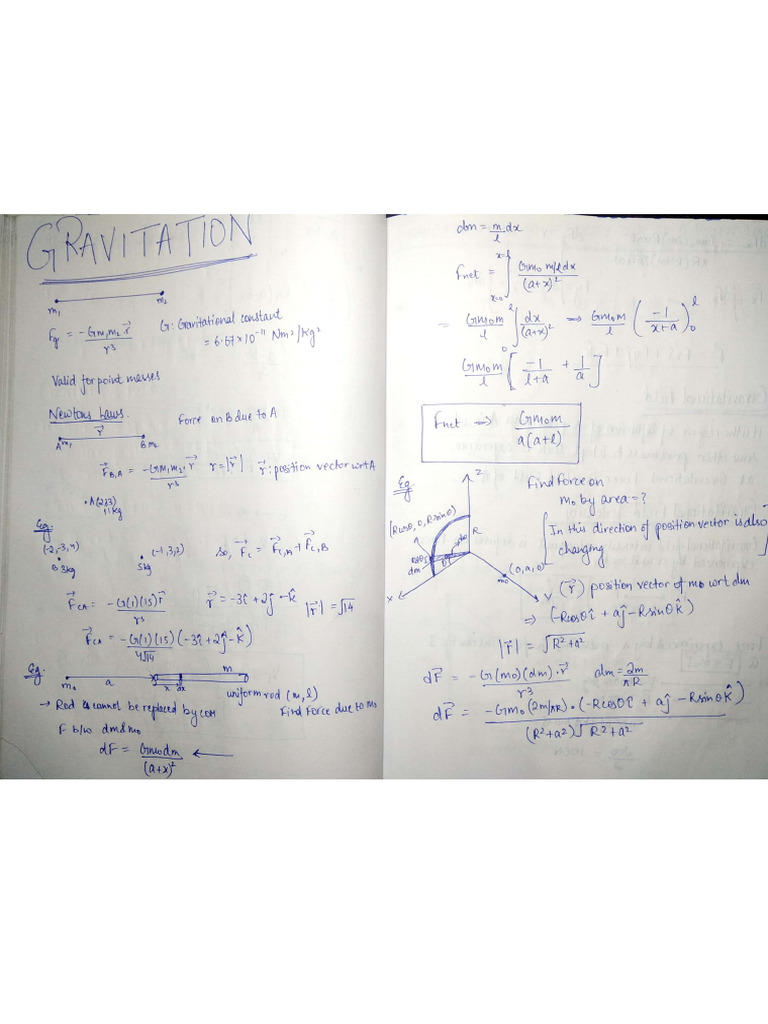 GRAVITATION
m₁ m₂
F_gr = -Gm₁m₂ r⃗ / r³
G: Gravitational constant
= 6.67 × 10⁻¹¹ Nm²/kg²
Valid for point masses
Newtons Laws.
Force on B due to A
r⃗
A m₁ B m₂
F⃗_B,A = -Gm₁m₂ · r⃗ / r³ r = |r⃗| r⃗: position vector wrt A
• A(2,1,3)
1kg
Eg.
(-2,-3,4)
B 3kg
(-1,3,2)
5kg
So, F⃗_C = F⃗_C,A + F⃗_C,B
F⃗_CA = -G(1)(15) r⃗ / r³ r⃗ = -3î + 2ĵ - k̂ |r⃗| = √14
F⃗_CA = -G(1)(15)(-3î + 2ĵ - k̂) / 4√14
Eg.
m₀ a x dx m
uniform rod (m, l)
→ Rod is cannot be replaced by COM Find Force due to m₀
F b/w dm & m₀
dF = Gm₀dm / (a+x)² ←
dm = m/l dx
F_net = ∫ x=0 x=l Gm₀ m/l dx / (a+x)²
= Gm₀m / l ∫ 0 l dx / (a+x)² ⇒ Gm₀m / l ( -1 / x+a ) 0 l
Gm₀m / l [ -1 / l+a + 1 / a ]
F_net → Gm₀m / a(a+l)
Eg.
Z
Find force on
m₀ by area = ?
(Rcosθ, 0, Rsinθ)
R
[In this direction of position vector is also changing]
dm
θ
(0,a,0)
m₀
X
Y
(r⃗) position vector of m₀ wrt dm
⇒ (-Rcosθ î + aĵ - Rsinθ k̂)
|r⃗| = √R² + a²
dF⃗ = -G(m₀)(dm) · r⃗ / r³ dm = 2m / πR
dF⃗ = -Gm₀(2m/πR) · (-Rcosθ î + aĵ - Rsinθ k̂) / (R²+a²)√R²+a²